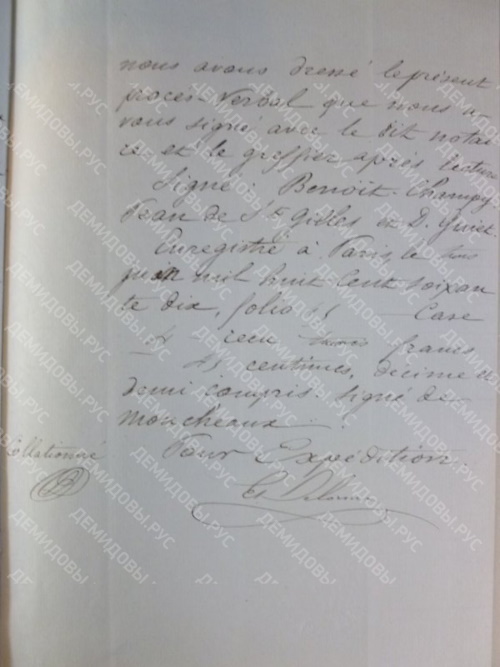 nous avons dressé le présent
procès-verbal que nous a-
vons signé avec le dit notai
re et le greffier après lecture
Signé: Benoit-Champy
Jean de St Gilles et D. Guiet.
Enregistré à Paris, le trois
juin mil huit cent soixan
te dix, folio Case
recu trois francs
45 centimes, décime et
demi compris. signé de
Moncheaux.
Pour Expédition.
Collationné
ДЕМИДОВЫ.РУС